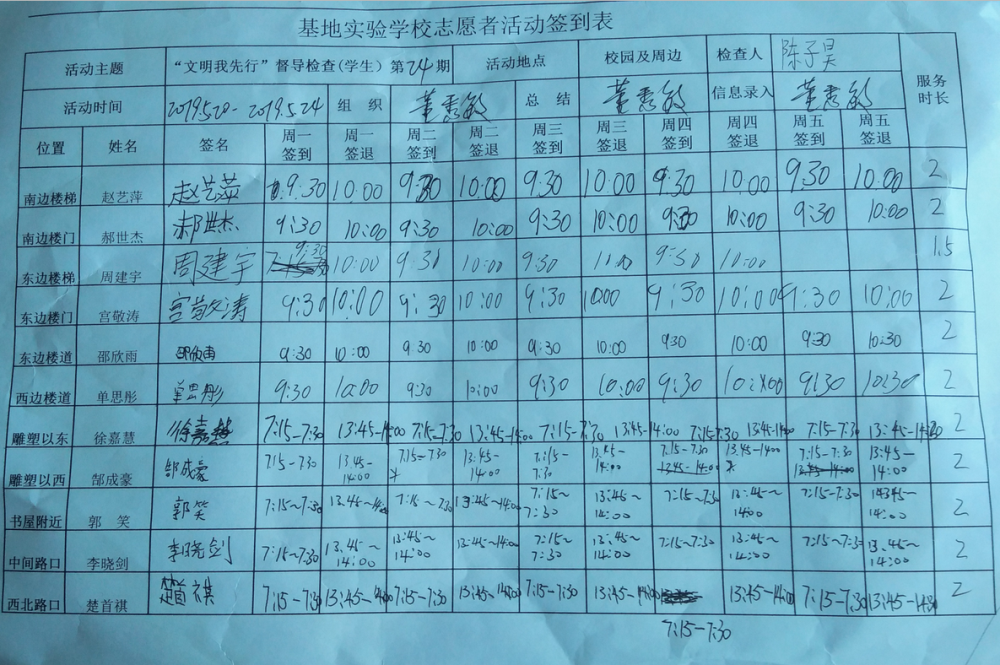 基地实验学校志愿者活动签到表
活动主题 “文明我先行”督导检查(学生) 第24期 活动地点 校园及周边 检查人 陈子昊 服务时长
活动时间 2019.5.20-2019.5.24 组织 董秀敏 总结 董秀敏 信息录入 董秀敏
位置 姓名 签名 周一签到 周一签退 周二签到 周二签退 周三签到 周三签退 周四签到 周四签退 周五签到 周五签退
南边楼梯 赵艺萍 赵艺萍 9:30 10:00 9:30 10:00 9:30 10:00 9:30 10:00 9:30 10:00 2
南边楼门 郝世杰 郝世杰 9:30 10:00 9:30 10:00 9:30 10:00 9:30 10:00 9:30 10:00 2
东边楼梯 周建宇 周建宇 9:30 10:00 9:30 10:00 9:30 10:00 9:30 10:00 1.5
东边楼门 宫敬涛 宫敬涛 9:30 10:00 9:30 10:00 9:30 10:00 9:30 10:00 9:30 10:00 2
东边楼道 邵欣雨 邵欣雨 9:30 10:00 9:30 10:00 9:30 10:00 9:30 10:00 9:30 10:30 2
西边楼道 单思彤 单思彤 9:30 10:00 9:30 10:00 9:30 10:00 9:30 10:00 9:30 10:30 2
雕塑以东 徐嘉慧 徐嘉慧 7:15-7:30 13:45-14:00 7:15-7:30 13:45-14:00 7:15-7:30 13:45-14:00 7:15-7:30 13:45-14:00 7:15-7:30 13:45-14:00 2
雕塑以西 郜成豪 郜成豪 7:15-7:30 13:45-14:00 7:15-7:30 13:45-14:00 7:15-7:30 13:45-14:00 7:15-7:30 13:45-14:00 7:15-7:30 13:45-14:00 2
书屋附近 郭 笑 郭笑 7:15~7:30 13:45~14:00 7:15~7:30 13:45~14:00 7:15~7:30 13:45~14:00 7:15~7:30 13:45~14:00 7:15~7:30 14:00 2
中间路口 李晓剑 李晓剑 7:15~7:30 13:45~14:00 7:15~7:30 13:45~14:00 13:45~14:00 7:15~7:30 13:45~14:00 7:15~7:30 13:45~14:00 7:15~7:30 13:45~14:00 2
西北路口 楚首祺 楚首祺 7:15-7:30 13:45-14:00 7:15-7:30 13:45-14:00 7:15-7:30 13:45-14:00 13:45-14:00 7:15-7:30 13:45-14:30 2
7:15-7:30